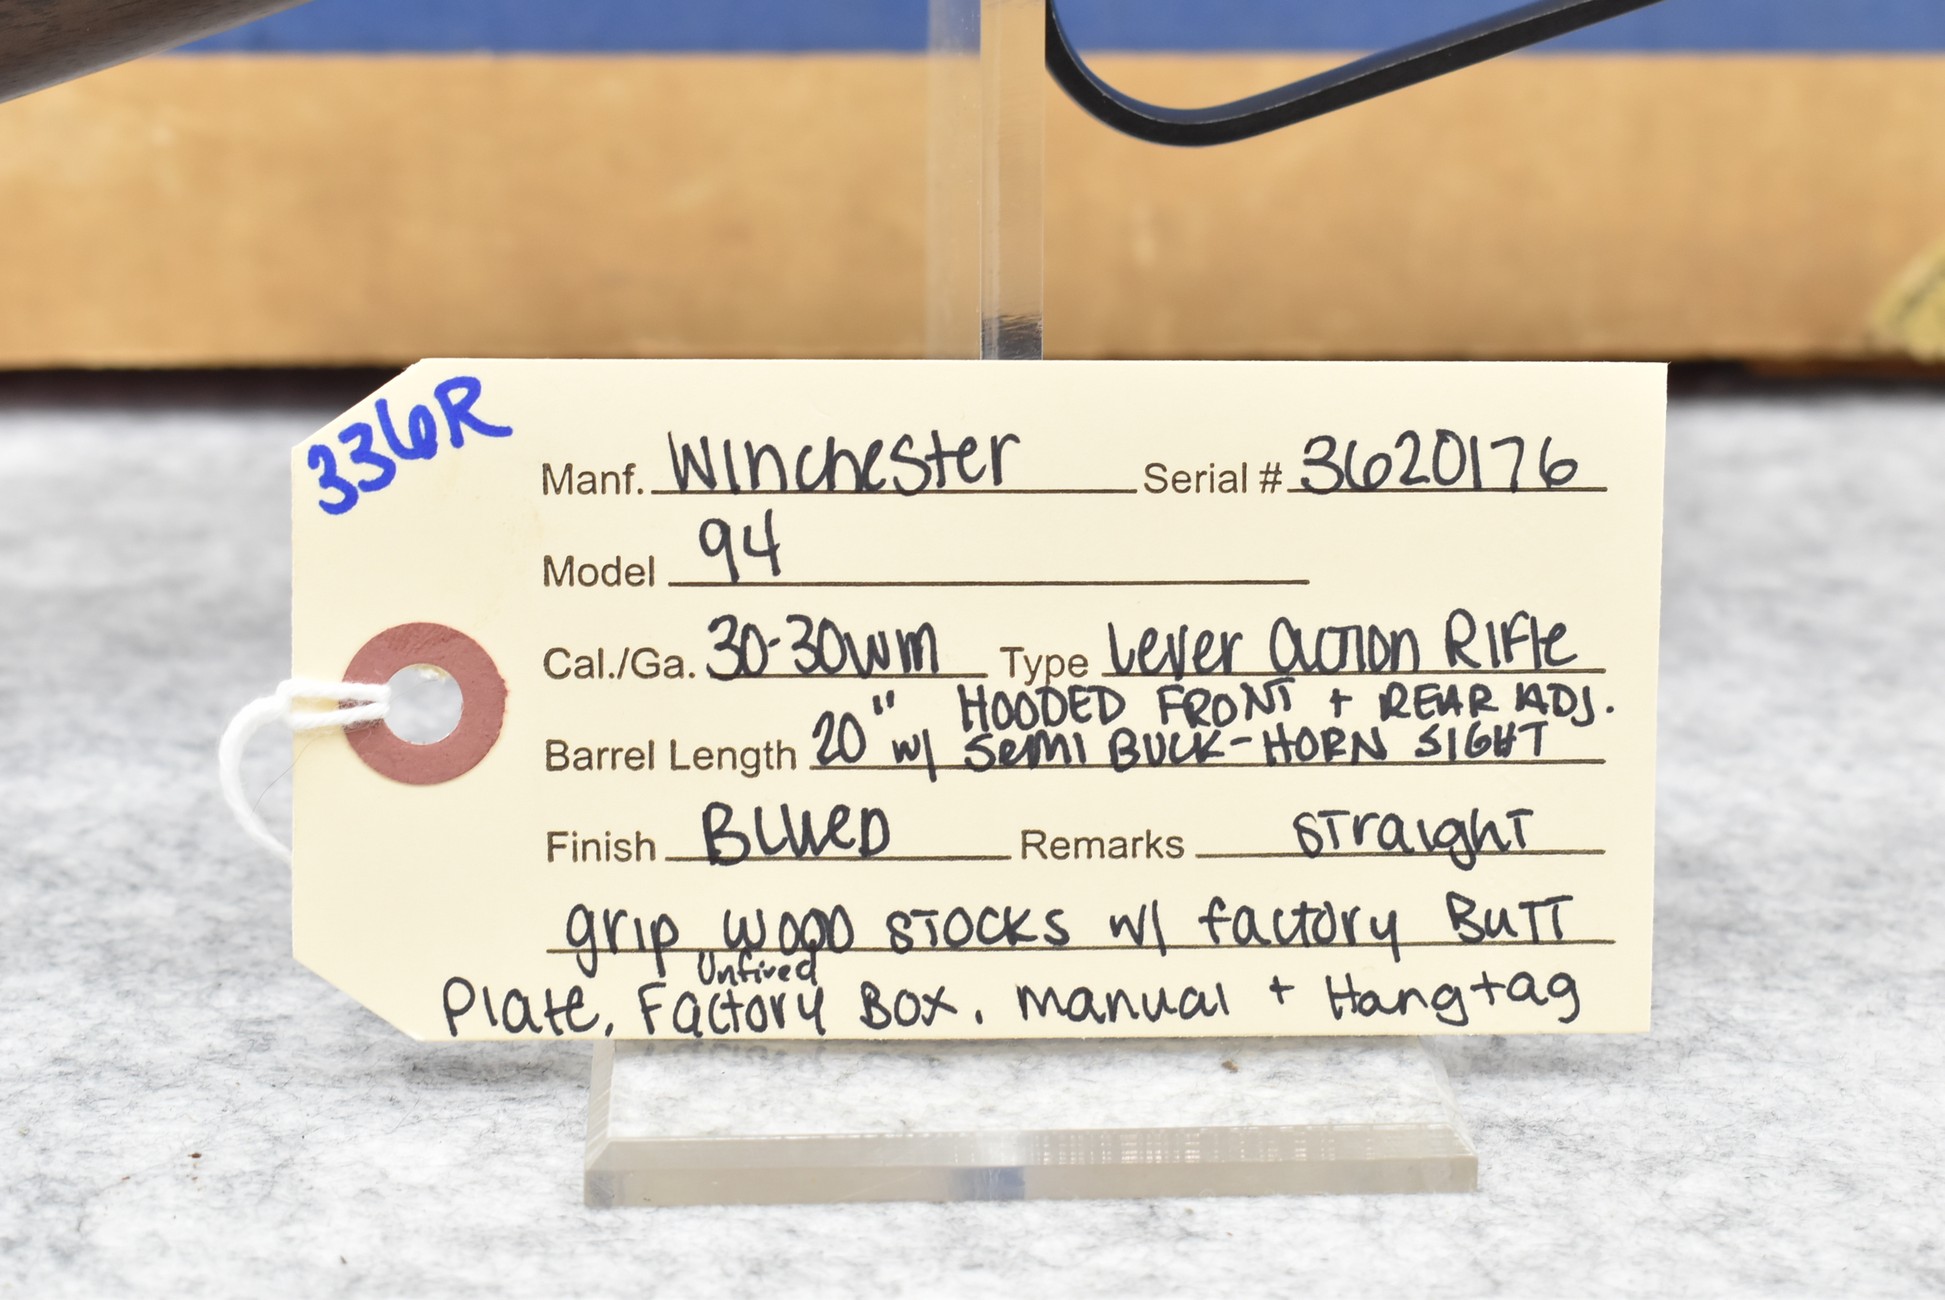 336R
Manf. Winchester Serial # 3620176
Model 94
Cal./Ga. 30-30wm Type Lever Action Rifle
HOODED FRONT + REAR ADJ.
Barrel Length 20" w/ Semi BUCK-HORN SIGHT
Finish BLUED Remarks straight
grip wood stocks w/ factory Butt
Unfired
Plate, Factory Box, manual + Hangtag